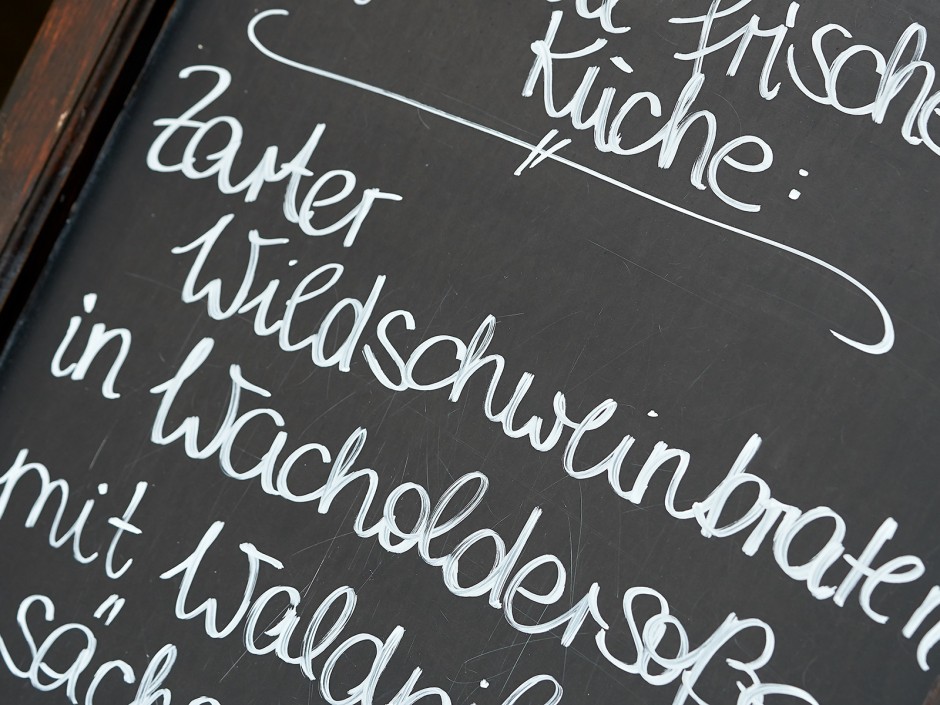 frische
Küche:
Zarter
Wildschweinbraten
in Wacholdersoße
mit